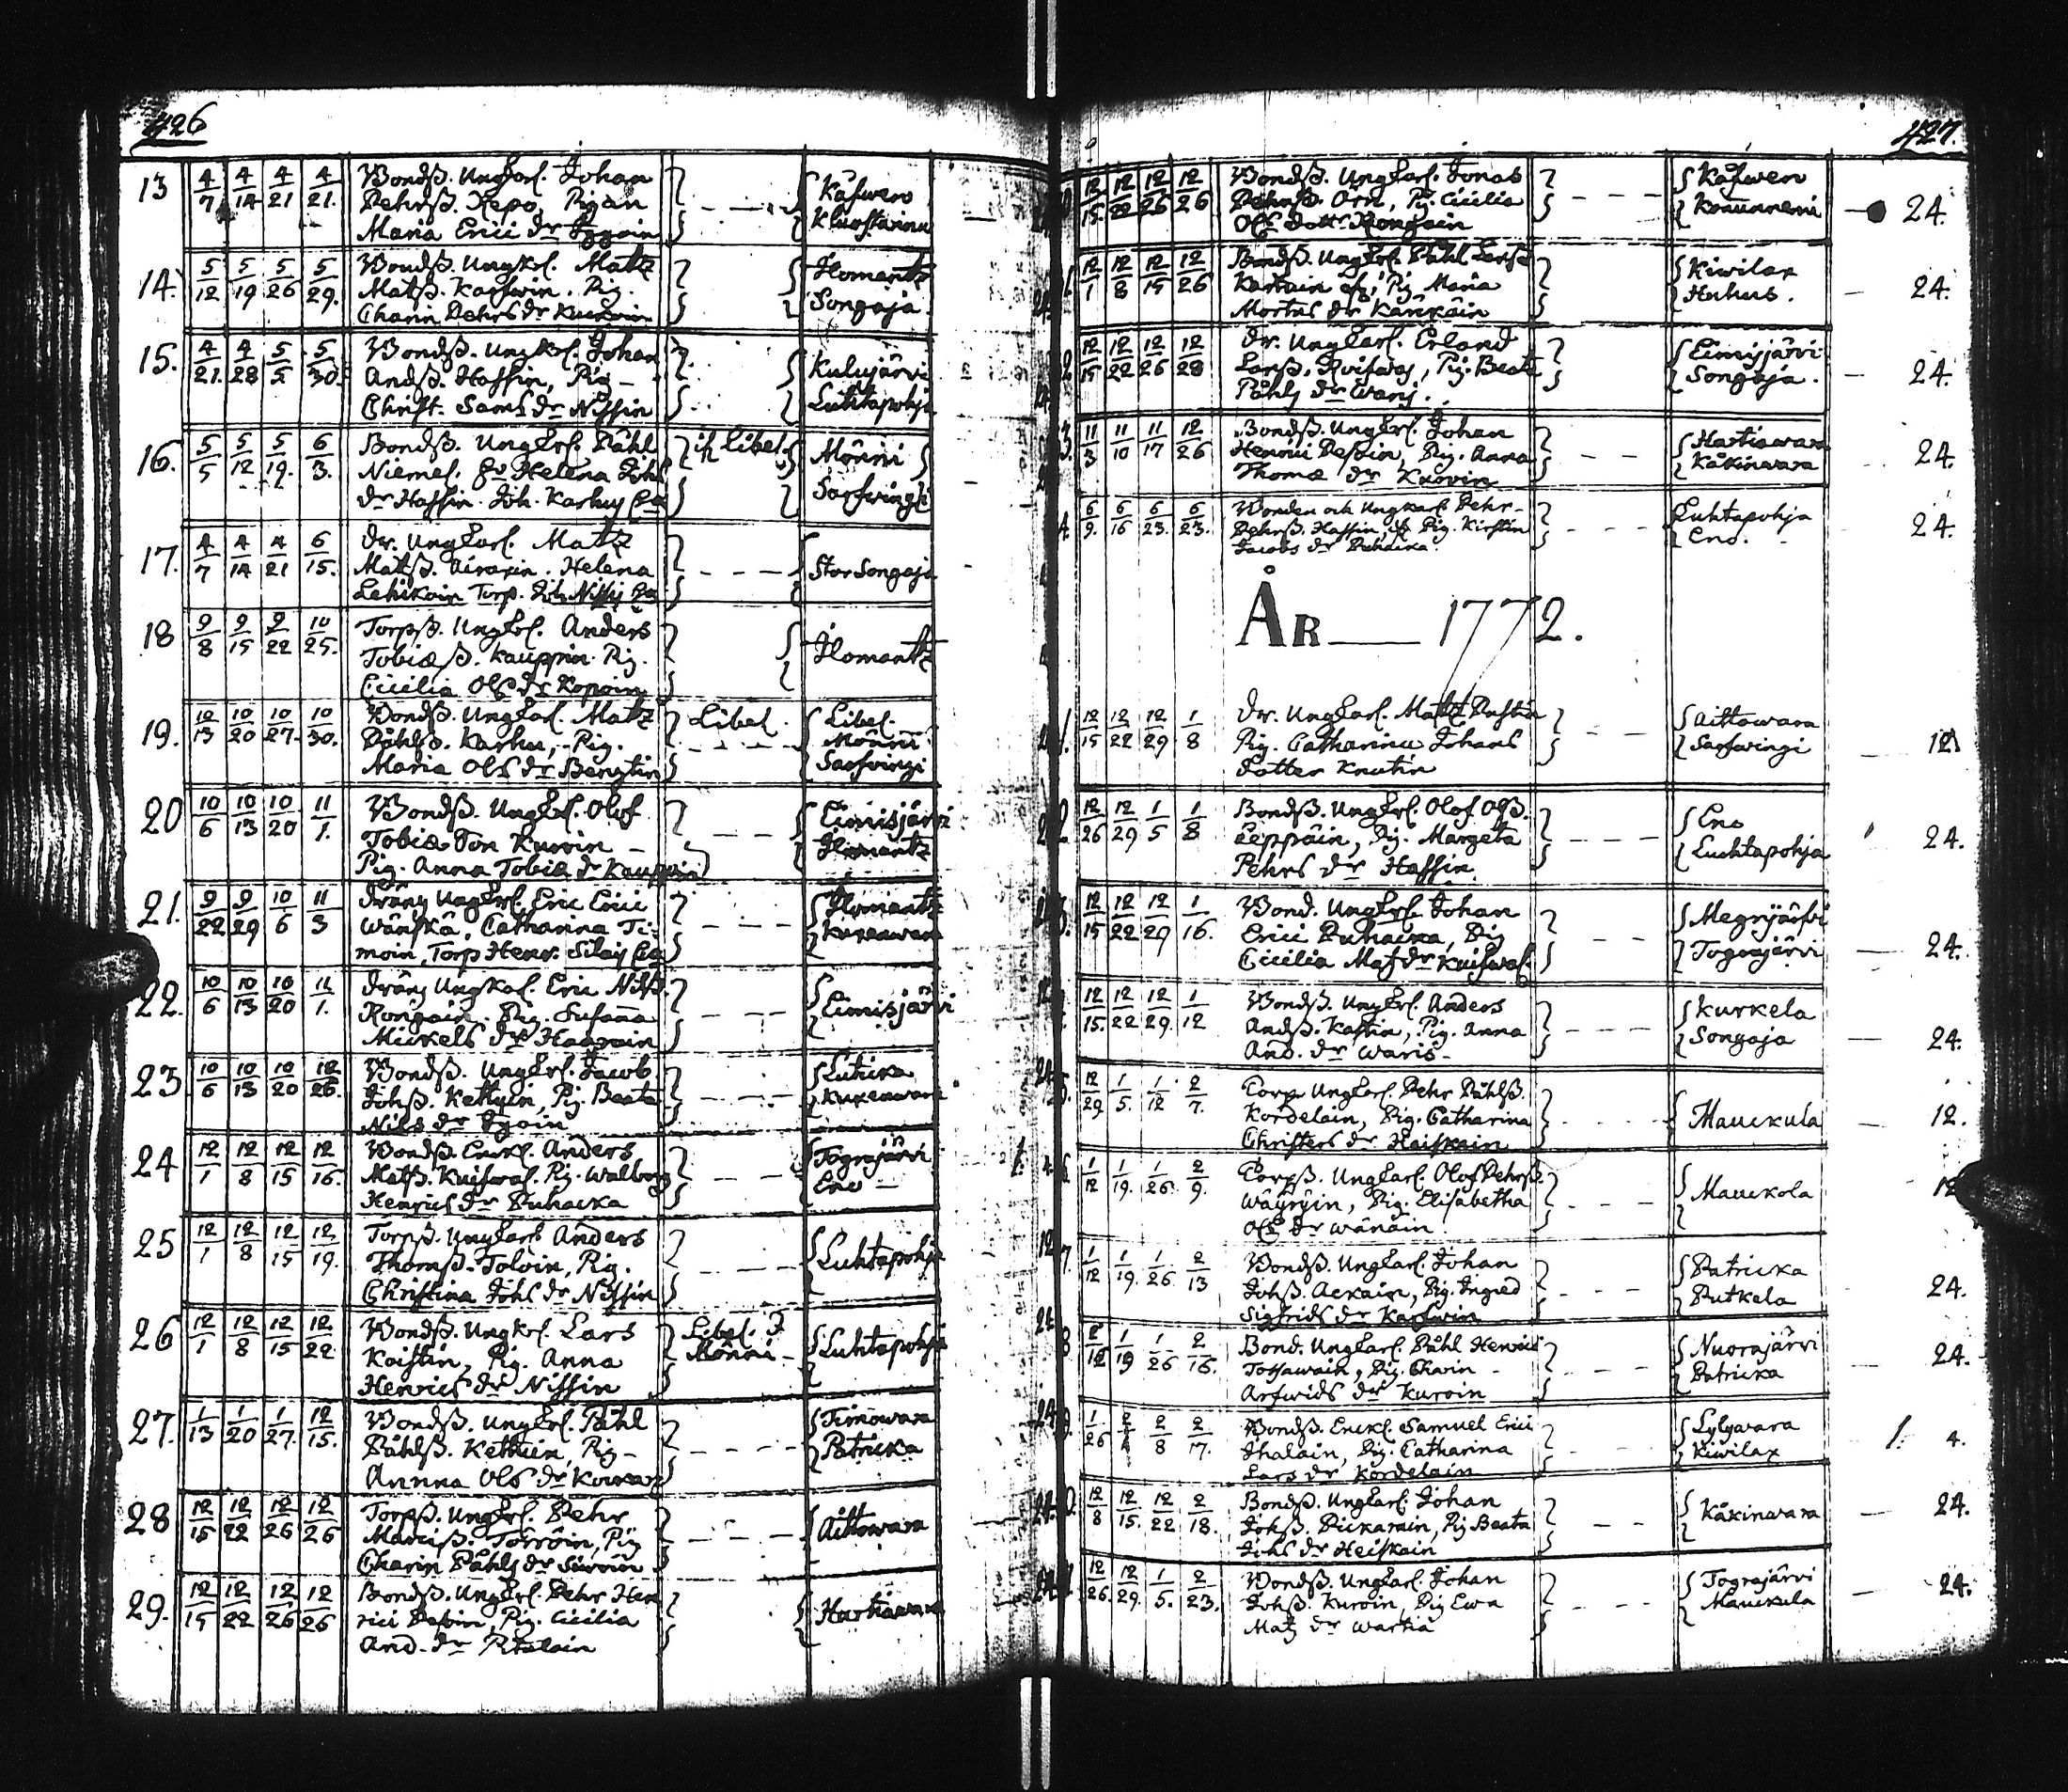 426
13 4/7 4/14 4/21 4/21. Bondß. Ungkarl. Johan
Pehrß. Repo, Pigan
Maria Erici dr
Käswen
14. 5/12 5/19 5/26 5/29. Bondß. Ungkrl. Matz
Matß. Karhwin. Pig.
Charin Pehrs dr
Ilomantz
Songaja
15. 4/21. 4/28 5/5 5/30. Bondß. Ungkrl. Johan
Andß. Hassin, Pig –
Christ. Sams dr Nissin
Kulujärvi
Luhtapohja
16. 5/5 5/12 5/19. 6/3. Bondß. Ungkrl. Påhl
Helena Johs
dr Hassin. Joh. Karhuj
Libel.
Mönni
Sarfwingi
17. 4/7 4/14 4/21 6/15. Dr. Ungkarl. Matz
Matß. Airaxin. Helena
Lehikoin Torp. Joh. Nissis
Stor Songaja
18 9/8 9/15 9/22 10/25. Torpß. Ungkrl. Anders
Tobiæ ß. Kauppin. Pig.
Cicilia Ols dr Kopoin
Ilomantz
19. 10/13 10/20 10/27. 10/30. Bondß. Ungkarl. Matz
Påhlß. Karhu, Pig.
Maria Ols dr Bengtin
Libel.
Libel.
Mönni
Sarfwingi
20 10/6 10/13 10/20 11/1. Bondß. Ungkrl. Olof
Tobiæ Son Kuroin –
Pig. Anna Tobiæ dr Kauppin
Eimisjärvi
Ilomantz
21. 9/22 9/29 10/6 11/3 Dräng Ungkrl. Eric Erici
Wänskä, Catharina Ti-
moin, Torp Henr.
Ilomantz
22. 10/6 10/13 10/20 11/1. Dräng Ungkal. Eric Nilß.
Rongain. Pig. Susanna
Mickels dr
Eimisjärvi
23 10/6 10/13 10/20 12/26. Bondß. Ungkrl. Jacob
Johß. Kettyin, Pig. Beata
Nils dr
Lutrica
24 12/1 12/8 12/15 12/16. Bondß. Enckl. Anders
Matß. Kuifwal. Pig. Walborg
Henrics dr Puhacka
Tograjärvi
Eno –
25 12/1 12/8 12/15 12/19. Torpß. Ungkarl Anders
Thomß. Toloin, Pig.
Christina Johs dr Nissin
Luhtapohja
26 12/1 12/8 12/15 12/22. Bondß. Ungkrl. Lars
Koistin, Pig. Anna
Henrics dr Nissin
Libel.
Mönni –
Luhtapohja
27. 1/13 1/20 1/27. 12/15. Bondß. Ungkrl. Påhl
Påhlß. Kettuin, Pig –
Annna Ols dr
Timowara
Patricka
28 12/15 12/22 12/26 12/26 Torpß. Ungkrl. Pehr
Torröin, Pig
Charin Påhls dr
Aittowara
29. 12/15 12/22 12/26 12/26 Bondß. Ungkrl. Pehr Hen
rici Pesoin, Pig. Cicilia
And. dr
Hartiawara
427.
12/15. 12/22 12/26 12/26 Bondß. Ungkarl. Jonas
Pehrß. Orn, Pig. Cicilia
Ols Dottr Rongain
Käswen
24.
12/1 12/8 12/15 12/26 Bondß. Ungkrl. Påhl Larß
Pig Maria
Mortns dr Känkäin
Kiwilax
Huhus.
24.
12/15 12/22 12/26 12/28 Dr. Ungkarl. Erland
Larß. Pig. Beata
Påhls dr Waris.
Eimisjärvi
Songaja.
24.
11/3 11/10 11/17 12/26 Bondß. Ungkrl. Johan
Henrici Pesoin, Pig. Anna
Thomæ dr Kuroin
Hartiawara
Kåkinwara
24.
6/9. 6/16 6/23. 6/23. Bonden och Ungkarl. Pehr
Pehrß. Hassin, Pig. Kirstin
Jacobs dr Puhacka.
Luhtapohja
Eno.
24.
ÅR 1772.
12/15 12/22 12/29 1/8 Dr. Ungkarl. Matz
Pig. Catharina Johans
Dotter Knutin
Aittowara
Sarfwingi
12/26 12/29 1/5 1/8 Bondß. Ungkrl. Olof Olß.
Leppäin, Pig. Margeta
Pehrs dr Hassin.
Eno
Luhtapohja
24.
12/15 12/22 12/29 1/16. Bond. Ungkrl. Johan
Erici Puhacka, Pig
Cicilia Mats dr Kuifwal.
Megrijärfvi
Tograjärvi
24.
12/15. 12/22 12/29. 1/12 Bondß. Ungkrl. Anders
Andß. Pig. Anna
And. dr Waris –
Kurkela
Songaja
24.
12/29 1/5. 1/12 2/7. Torp Ungkarl. Pehr Påhlß.
Kordelain, Pig. Catharina
Christers dr Heiskain
Mauckula
12.
1/12 1/19. 1/26. 2/9. Torpß. Ungkarl. Olof Pehrß.
Wäyryin, Pig. Elisabetha
Ols dr Wänäin
Mauckola
12
1/12 1/19. 1/26. 2/13 Bondß. Ungkarl. Johan
Johß. Ackain, Pig. Ingred
Sigfrids dr
Patricka
Putkela
24.
1/19 1/26 2/16. Bond. Ungkarl. Påhl Henrici
Pig. Charin –
Arfwids dr Kuroin
Nuorajärvi
Patricka
24.
1/26 2/8 2/17. Bondß. Enckl. Samuel Erici
Ihalain, Pig. Catharina
Lars dr Kordelain
Lylywara
Kiwilax
4.
12/8 12/15. 12/22 2/18. Bondß. Ungkarl. Johan
Johß. Pickarain, Pig Beata
Johs dr Heiskain
Kåkinwara
24.
12/26. 12/29. 1/5. 2/23. Bondß. Ungkarl. Johan
Johß. Kuroin, Pig Ewa
Matz dr Wartia
Tograjärvi
Mauckula
24.